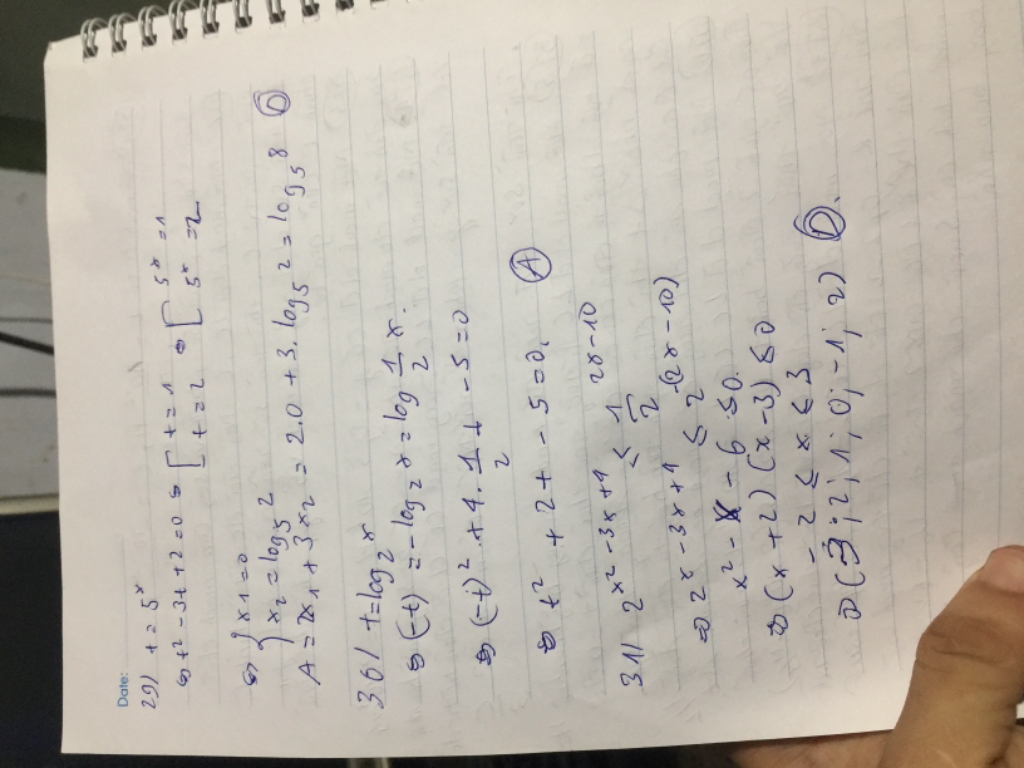 Date:
29) t = 5^x
⇔ t² - 3t + 2 = 0 ⇔ [ t = 1 ; t = 2 ⇔ [ 5^x = 1 ; 5^x = 2
⇔ { x1 = 0
{ x2 = log5 2
A = 2x1 + 3x2 = 2.0 + 3.log5 2 = log5 8 (D)
30) t = log2 x
⇔ (-t) = -log2 x = log 1/2 x.
⇔ (-t)² + 4.1/2 t - 5 = 0
⇔ t² + 2t - 5 = 0. (A)
31) 2^(x² - 3x + 4) ≤ 1/2^(2x - 10)
⇒ 2^(x - 3x + 4) ≤ 2^(-(2x - 10))
x² - x - 6 ≤ 0.
⇔ (x + 2)(x - 3) ≤ 0
- 2 ≤ x ≤ 3
⇒ (3; 2; 1; 0; -1; 2) (D).